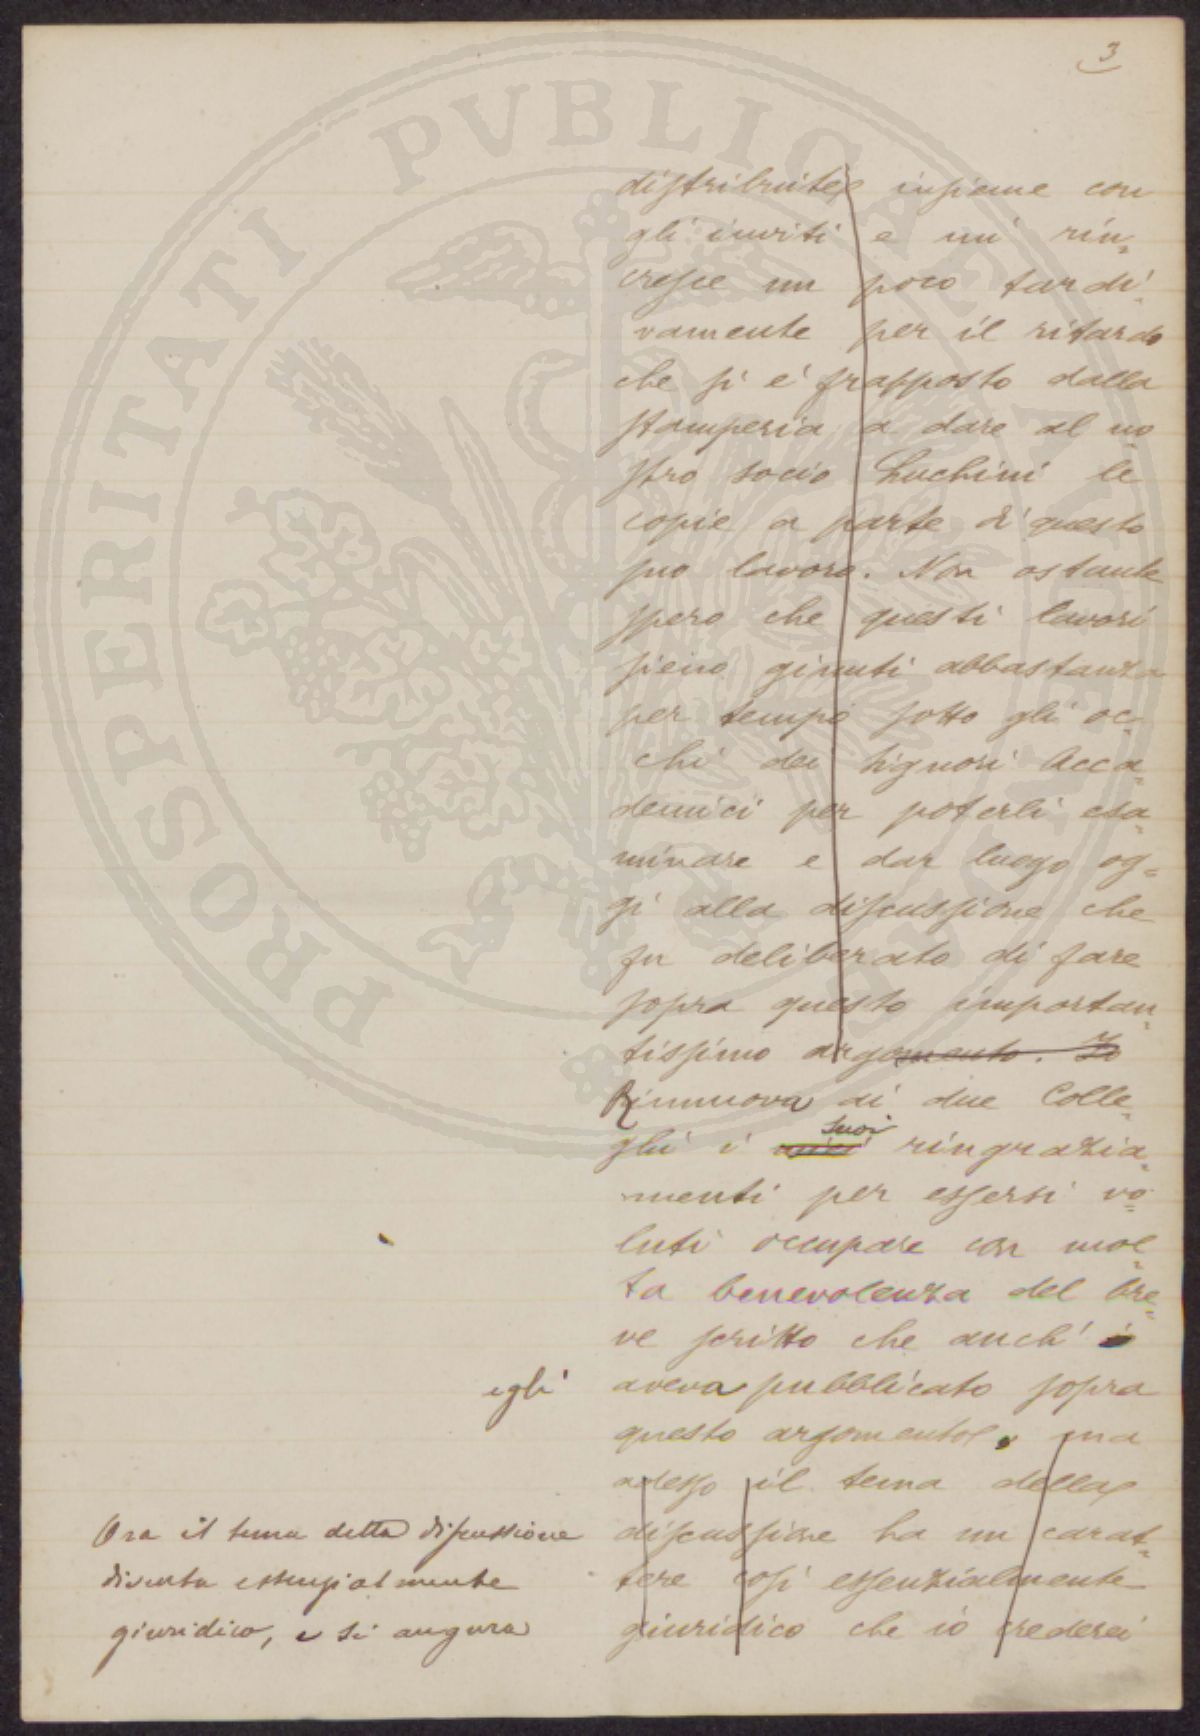 3
distribuite insieme con
gli inviti e mi rin=
cresce un poco tardi=
vamente per il ritardo
che si è frapposto dalla
stamperia a dare al no=
stro socio Luchini le
copie a parte di questo
suo lavoro. Non ostante
spero che questi lavori
sieno giunti abbastanza
per tempo sotto gli oc=
chi dei Signori Acca=
demici per poterli esa=
minare e dar luogo og=
gi alla discussione che
fu deliberato di fare
sopra questo importan=
tissimo argomento. Io
Rinnuova ai due Colle=
ghi i miei suoi ringrazia=
menti per essersi vo=
luti occupare con mol=
ta benevolenza del bre=
ve scritto che anch'
egli
aveva pubblicato sopra
questo argomento, ma
adesso il tema della
discussione ha un carat=
tere così essenzialmente
giuridico che io crederei
Ora il tema della discussione
diventa essenzialmente
giuridico, e si augura
PROSPERITATI PVBLICAE AVGENDAE